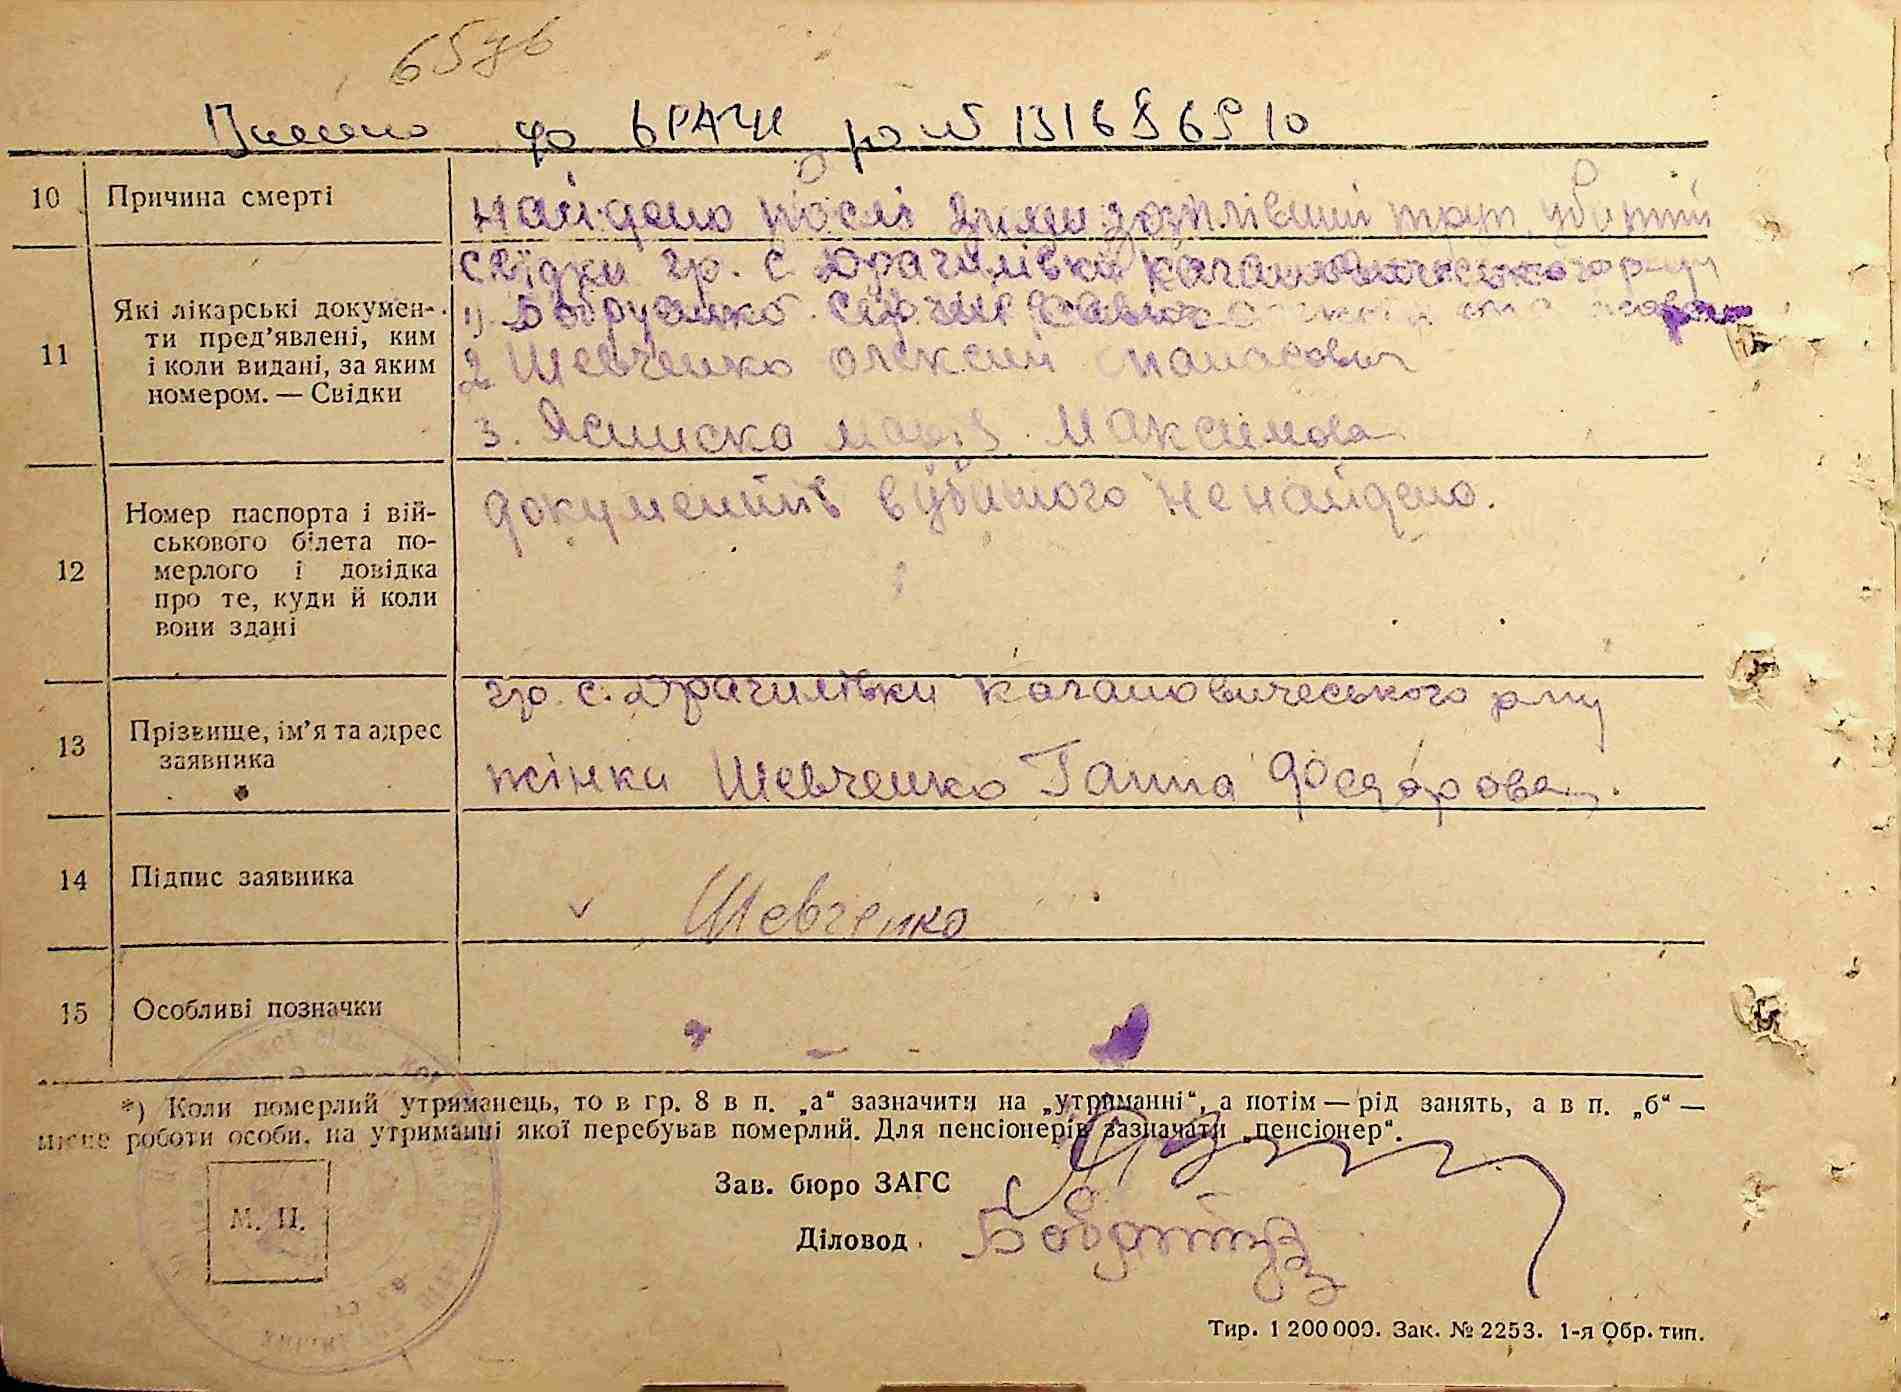 Внесено до ВРАЦС за № 131686910
10 Причина смерті
найдено після зими зогнівший труп, убитий
11 Які лікарські докумен-
ти пред'явлені, ким
і коли видані, за яким
номером. — Свідки
свідки гр. с. Драгилівки Кагановического р-ну
1)
2 Шевченко Олексій Панасович
3. Максимова
12 Номер паспорта і вій-
ськового білета по-
мерлого і довідка
про те, куди й коли
вони здані
документів в убитого не найдено.
13 Прізвище, ім'я та адрес
заявника
гр. с. Драгилівки Кагановичеського р-ну
жінка Шевченко Ганна Федорова
14 Підпис заявника
Шевченко
15 Особливі позначки
*) Коли померлий утриманець, то в гр. 8 в п. „а“ зазначити на „утриманні“, а потім — рід занять, а в п. „б“ —
місце роботи особи, на утриманні якої перебував померлий. Для пенсіонерів зазначати „пенсіонер“.
Зав. бюро ЗАГС
М. П.
Діловод
Тир. 1 200 000. Зак. № 2253. 1-я Обр. тип.